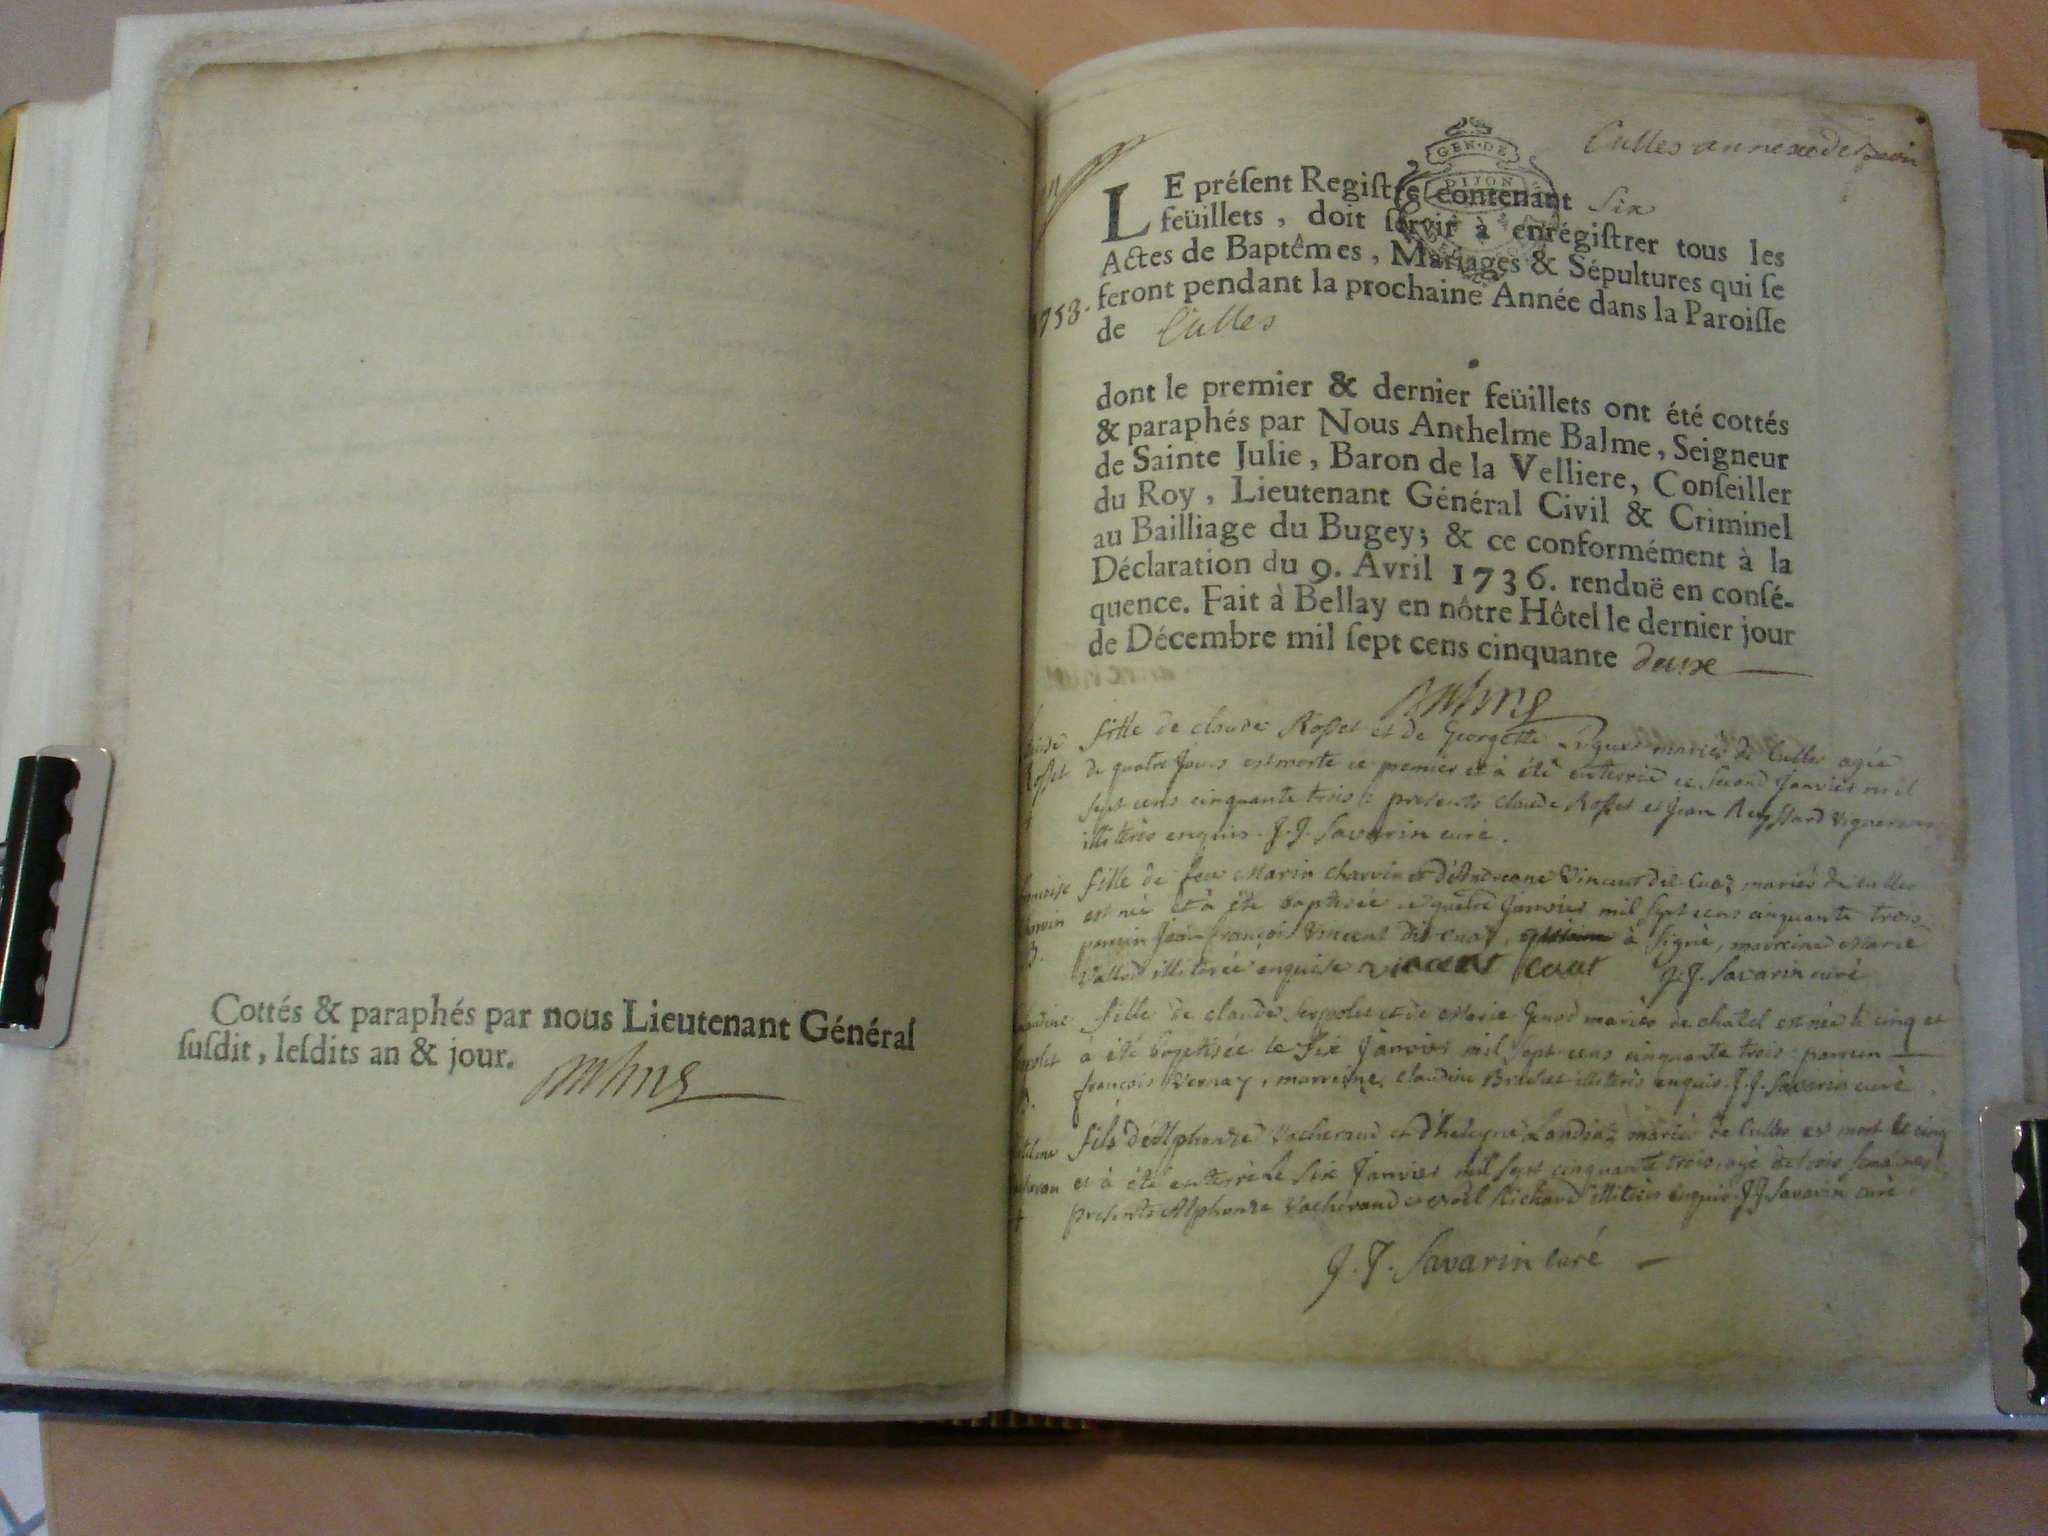 Cottés & paraphés par nous Lieutenant Général
suſdit, leſdits an & jour.
Culles annexe de
GEN·DE
DIJON
LE préſent Regiſtre contenant six
feüillets, doit ſervir à enrégiſtrer tous les
Actes de Baptêmes, Mariages & Sépultures qui ſe
feront pendant la prochaine Année dans la Paroiſſe
1753.
de Culles
dont le premier & dernier feüillets ont été cottés
& paraphés par Nous Anthelme Balme, Seigneur
de Sainte Julie, Baron de la Velliere, Conſeiller
du Roy, Lieutenant Général Civil & Criminel
au Bailliage du Bugey; & ce conformément à la
Déclaration du 9. Avril 1736. renduë en conſé-
quence. Fait à Bellay en nôtre Hôtel le dernier jour
de Décembre mil ſept cens cinquante deuxe
fille de claude Rosset et de Georgette mariés de Culles agée
de quatre jours est morte ce premier et à été enterrée ce second Janvier mil
sept cens cinquante trois presents claude Rosset et Jean vignerons
illiterés enquis. J.J. Savarin curé.
fille de feu Marin charvin et Vincent dit Cuaz mariés de culles
est née et à été baptisée ce quatre Janvier mil sept cens cinquante trois
parrein Jean françois Vincent dit cuaz, à signé, marreine Marie
illiterée enquise vincent cuat J.J. Savarin curé
fille de claude Serpolet et de Marie Genod mariés de chatel est née le cinq et
à été baptisée le six Janvier mil sept cens cinquante trois parrein
françois Vernay, marreine, claudine illiterés enquis. J.J. Savarin curé
fils d'Alphonse Vacherand et d'heleyne mariés de Culles est mort le cinq
et à été enterré le six Janvier mil sept cinquante trois, agé de trois semaines
presents Alphonse Vacherand et Noël Richard illiterés enquis. J.J. Savarin curé
J. J. Savarin curé